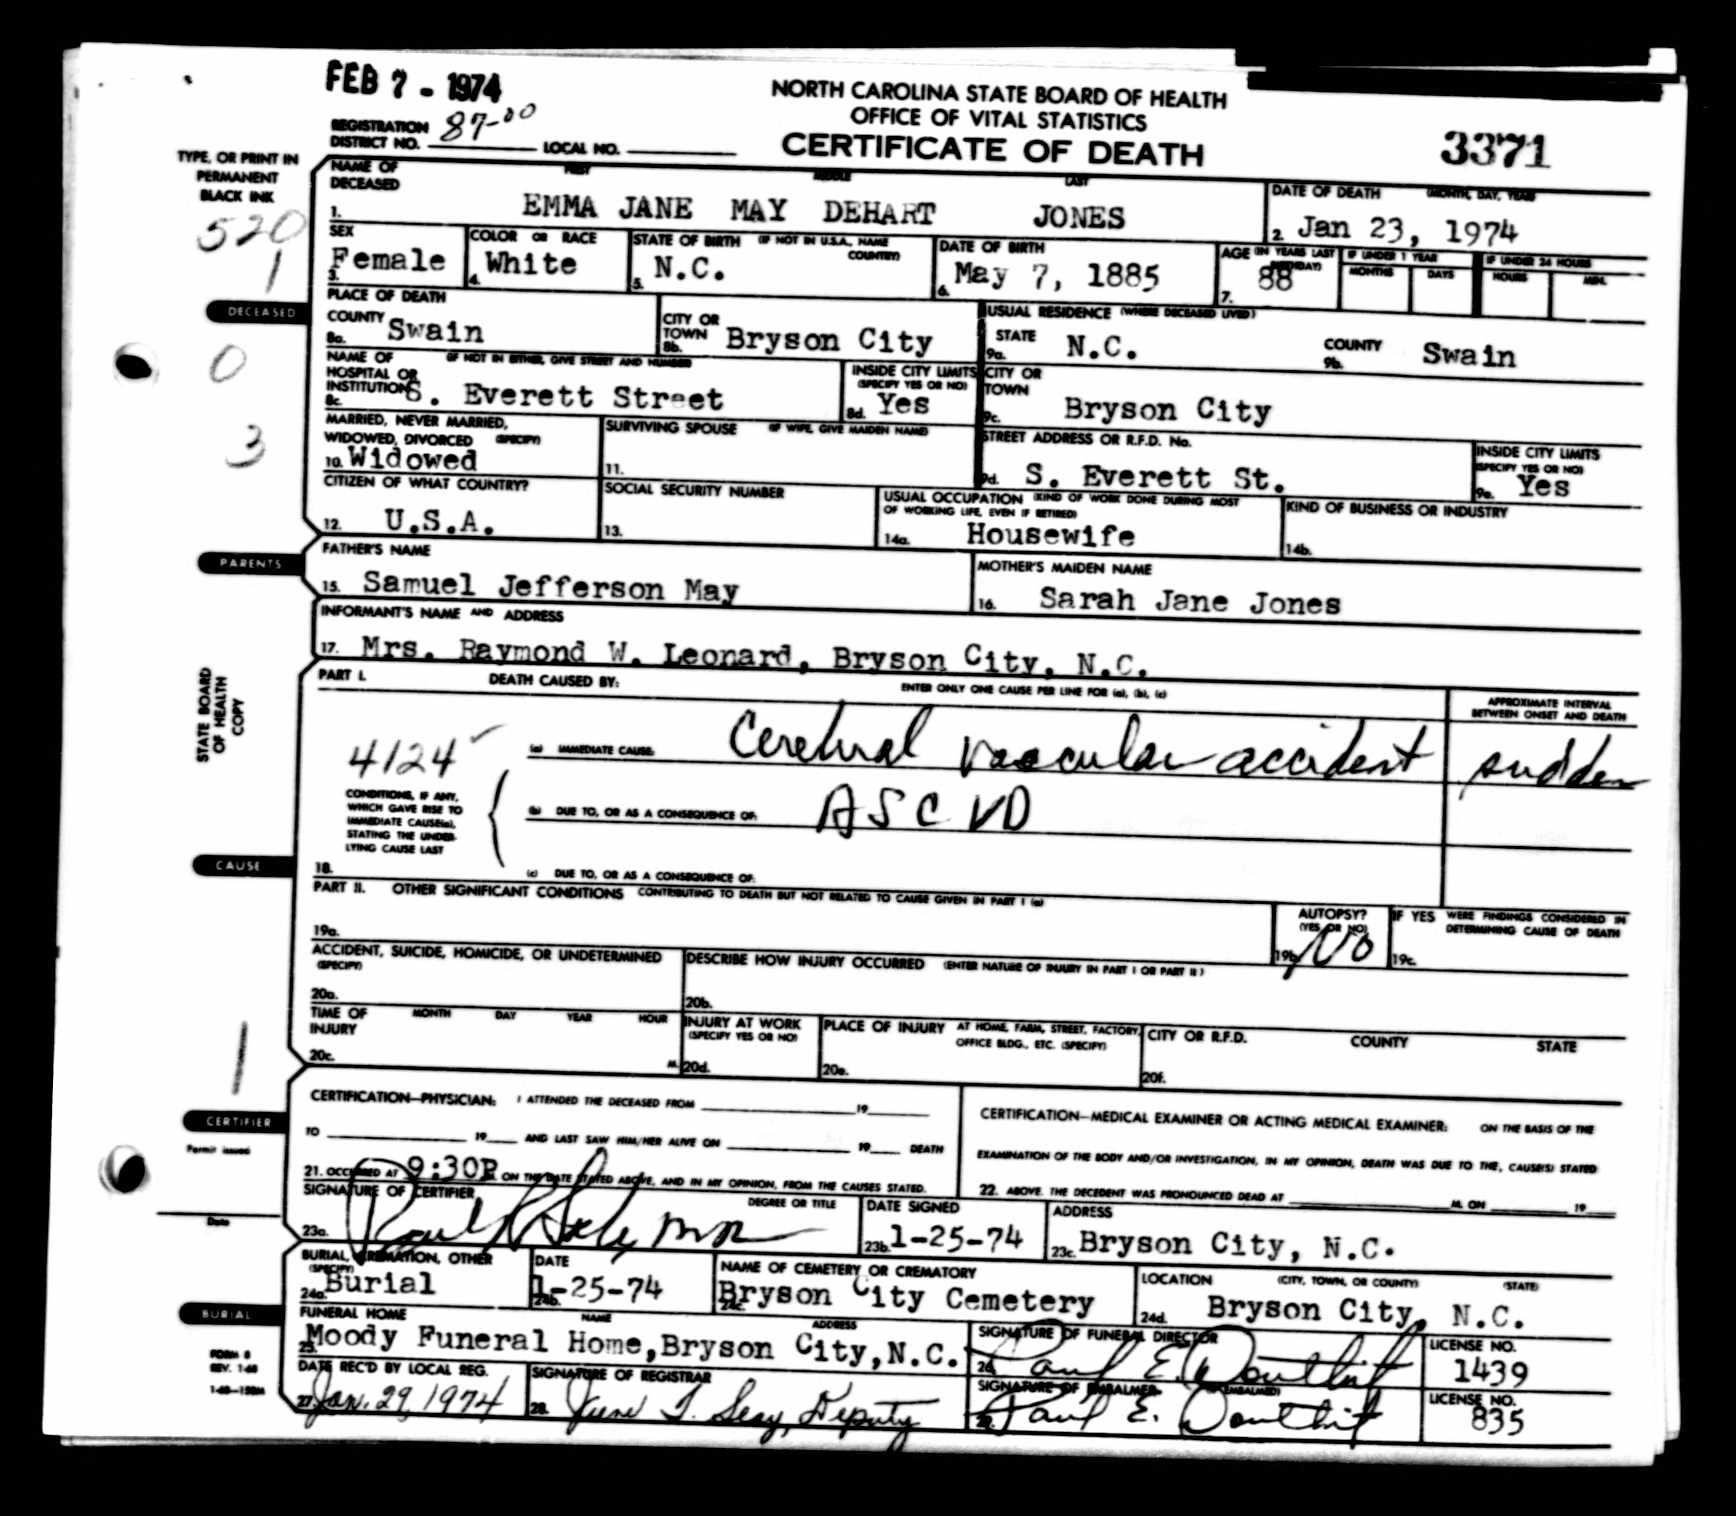 FEB 7 - 1974
NORTH CAROLINA STATE BOARD OF HEALTH
OFFICE OF VITAL STATISTICS
CERTIFICATE OF DEATH
3371
REGISTRATION DISTRICT NO. 87-00 LOCAL NO.
TYPE, OR PRINT IN
PERMANENT
BLACK INK
520
1
NAME OF DECEASED FIRST MIDDLE LAST
1. EMMA JANE MAY DEHART JONES
DATE OF DEATH (MONTH, DAY, YEAR)
2. Jan 23, 1974
SEX
3. Female
COLOR OR RACE
4. White
STATE OF BIRTH (IF NOT IN U.S.A., NAME COUNTRY)
5. N.C.
DATE OF BIRTH
6. May 7, 1885
AGE (IN YEARS LAST BIRTHDAY)
7. 88
IF UNDER 1 YEAR
MONTHS DAYS
IF UNDER 24 HOURS
HOURS MIN.
DECEASED
0
3
PLACE OF DEATH
COUNTY
8a. Swain
CITY OR TOWN
8b. Bryson City
USUAL RESIDENCE (WHERE DECEASED LIVED)
STATE
9a. N.C.
COUNTY
9b. Swain
NAME OF HOSPITAL OR INSTITUTION (IF NOT IN EITHER, GIVE STREET AND NUMBER)
8c. S. Everett Street
INSIDE CITY LIMITS (SPECIFY YES OR NO)
8d. Yes
CITY OR TOWN
9c. Bryson City
MARRIED, NEVER MARRIED, WIDOWED, DIVORCED (SPECIFY)
10. Widowed
SURVIVING SPOUSE (IF WIFE, GIVE MAIDEN NAME)
11.
STREET ADDRESS OR R.F.D. No.
9d. S. Everett St.
INSIDE CITY LIMITS (SPECIFY YES OR NO)
9e. Yes
CITIZEN OF WHAT COUNTRY?
12. U.S.A.
SOCIAL SECURITY NUMBER
13.
USUAL OCCUPATION (KIND OF WORK DONE DURING MOST OF WORKING LIFE, EVEN IF RETIRED)
14a. Housewife
KIND OF BUSINESS OR INDUSTRY
14b.
PARENTS
FATHER'S NAME
15. Samuel Jefferson May
MOTHER'S MAIDEN NAME
16. Sarah Jane Jones
INFORMANT'S NAME AND ADDRESS
17. Mrs. Raymond W. Leonard, Bryson City, N.C.
STATE BOARD
OF HEALTH
COPY
PART I. DEATH CAUSED BY: ENTER ONLY ONE CAUSE PER LINE FOR (a), (b), (c)
APPROXIMATE INTERVAL BETWEEN ONSET AND DEATH
4124
(a) IMMEDIATE CAUSE: Cerebral vascular accident sudden
CONDITIONS, IF ANY,
WHICH GAVE RISE TO
IMMEDIATE CAUSE(a),
STATING THE UNDER-
LYING CAUSE LAST
(b) DUE TO, OR AS A CONSEQUENCE OF: ASCVD
CAUSE
18. (c) DUE TO, OR AS A CONSEQUENCE OF:
PART II. OTHER SIGNIFICANT CONDITIONS CONTRIBUTING TO DEATH BUT NOT RELATED TO CAUSE GIVEN IN PART I (a)
19a.
AUTOPSY? (YES OR NO)
19b. No
IF YES WERE FINDINGS CONSIDERED IN DETERMINING CAUSE OF DEATH
19c.
ACCIDENT, SUICIDE, HOMICIDE, OR UNDETERMINED (SPECIFY)
20a.
DESCRIBE HOW INJURY OCCURRED (ENTER NATURE OF INJURY IN PART I OR PART II)
20b.
TIME OF INJURY MONTH DAY YEAR HOUR
20c. M.
INJURY AT WORK (SPECIFY YES OR NO)
20d.
PLACE OF INJURY AT HOME, FARM, STREET, FACTORY, OFFICE BLDG., ETC. (SPECIFY)
20e.
CITY OR R.F.D. COUNTY STATE
20f.
CERTIFIER
Permit issued
Date
CERTIFICATION—PHYSICIAN: I ATTENDED THE DECEASED FROM 19
TO 19 AND LAST SAW HIM/HER ALIVE ON 19 DEATH
21. OCCURRED AT 9:30P ON THE DATE STATED ABOVE, AND IN MY OPINION, FROM THE CAUSES STATED.
CERTIFICATION—MEDICAL EXAMINER OR ACTING MEDICAL EXAMINER: ON THE BASIS OF THE
EXAMINATION OF THE BODY AND/OR INVESTIGATION, IN MY OPINION, DEATH WAS DUE TO THE, CAUSE(S) STATED
22. ABOVE. THE DECEDENT WAS PRONOUNCED DEAD AT M. ON 19
SIGNATURE OF CERTIFIER DEGREE OR TITLE
23a. Paul
DATE SIGNED
23b. 1-25-74
ADDRESS
23c. Bryson City, N.C.
BURIAL
BURIAL, CREMATION, OTHER (SPECIFY)
24a. Burial
DATE
24b. 1-25-74
NAME OF CEMETERY OR CREMATORY
24c. Bryson City Cemetery
LOCATION (CITY, TOWN, OR COUNTY) (STATE)
24d. Bryson City, N.C.
FUNERAL HOME NAME ADDRESS
25. Moody Funeral Home, Bryson City, N.C.
SIGNATURE OF FUNERAL DIRECTOR
26. Paul E. Douthit
LICENSE NO.
1439
FORM 8
REV. 1-68
1-68—150M
DATE REC'D BY LOCAL REG.
27. Jan. 29, 1974
SIGNATURE OF REGISTRAR
28. June T. Seay, Deputy
SIGNATURE OF EMBALMER (IF EMBALMED)
29. Paul E. Douthit
LICENSE NO.
835